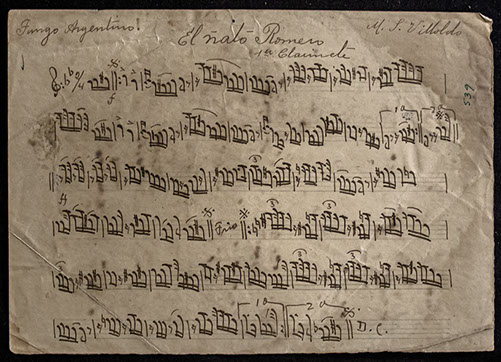 Tango Argentino.
El ñato Romero
M. S. Villoldo
1er Clarinete
2/4
539
1a
2a
Trio
1a
2a
D.C.